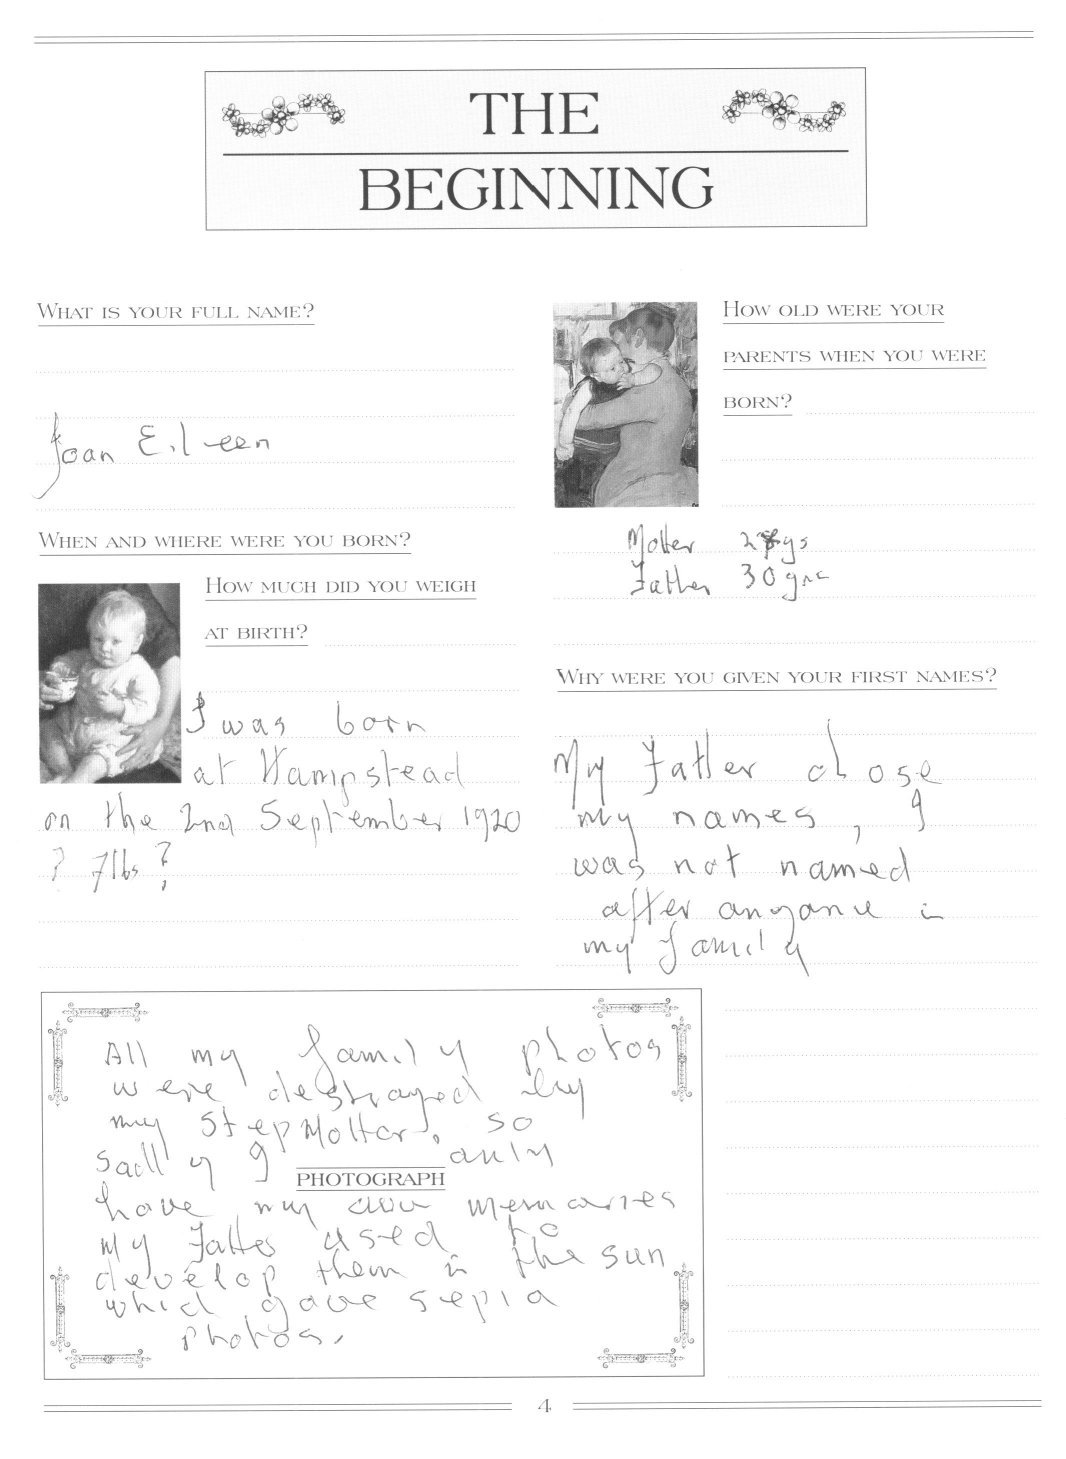 THE
BEGINNING
WHAT IS YOUR FULL NAME?
Joan Eileen
WHEN AND WHERE WERE YOU BORN?
HOW MUCH DID YOU WEIGH
AT BIRTH?
I was born
at Hampstead
on the 2nd September 1920
? 7lbs ?
HOW OLD WERE YOUR
PARENTS WHEN YOU WERE
BORN?
Mother
Father 30 yrs
WHY WERE YOU GIVEN YOUR FIRST NAMES?
My Father chose
my names, I
was not named
after anyone in
my family
All my family photos
were destroyed by
my StepMother, so
sadly I only
PHOTOGRAPH
have my own memories
My Father used to
develop them in the sun
which gave sepia
photos.
4